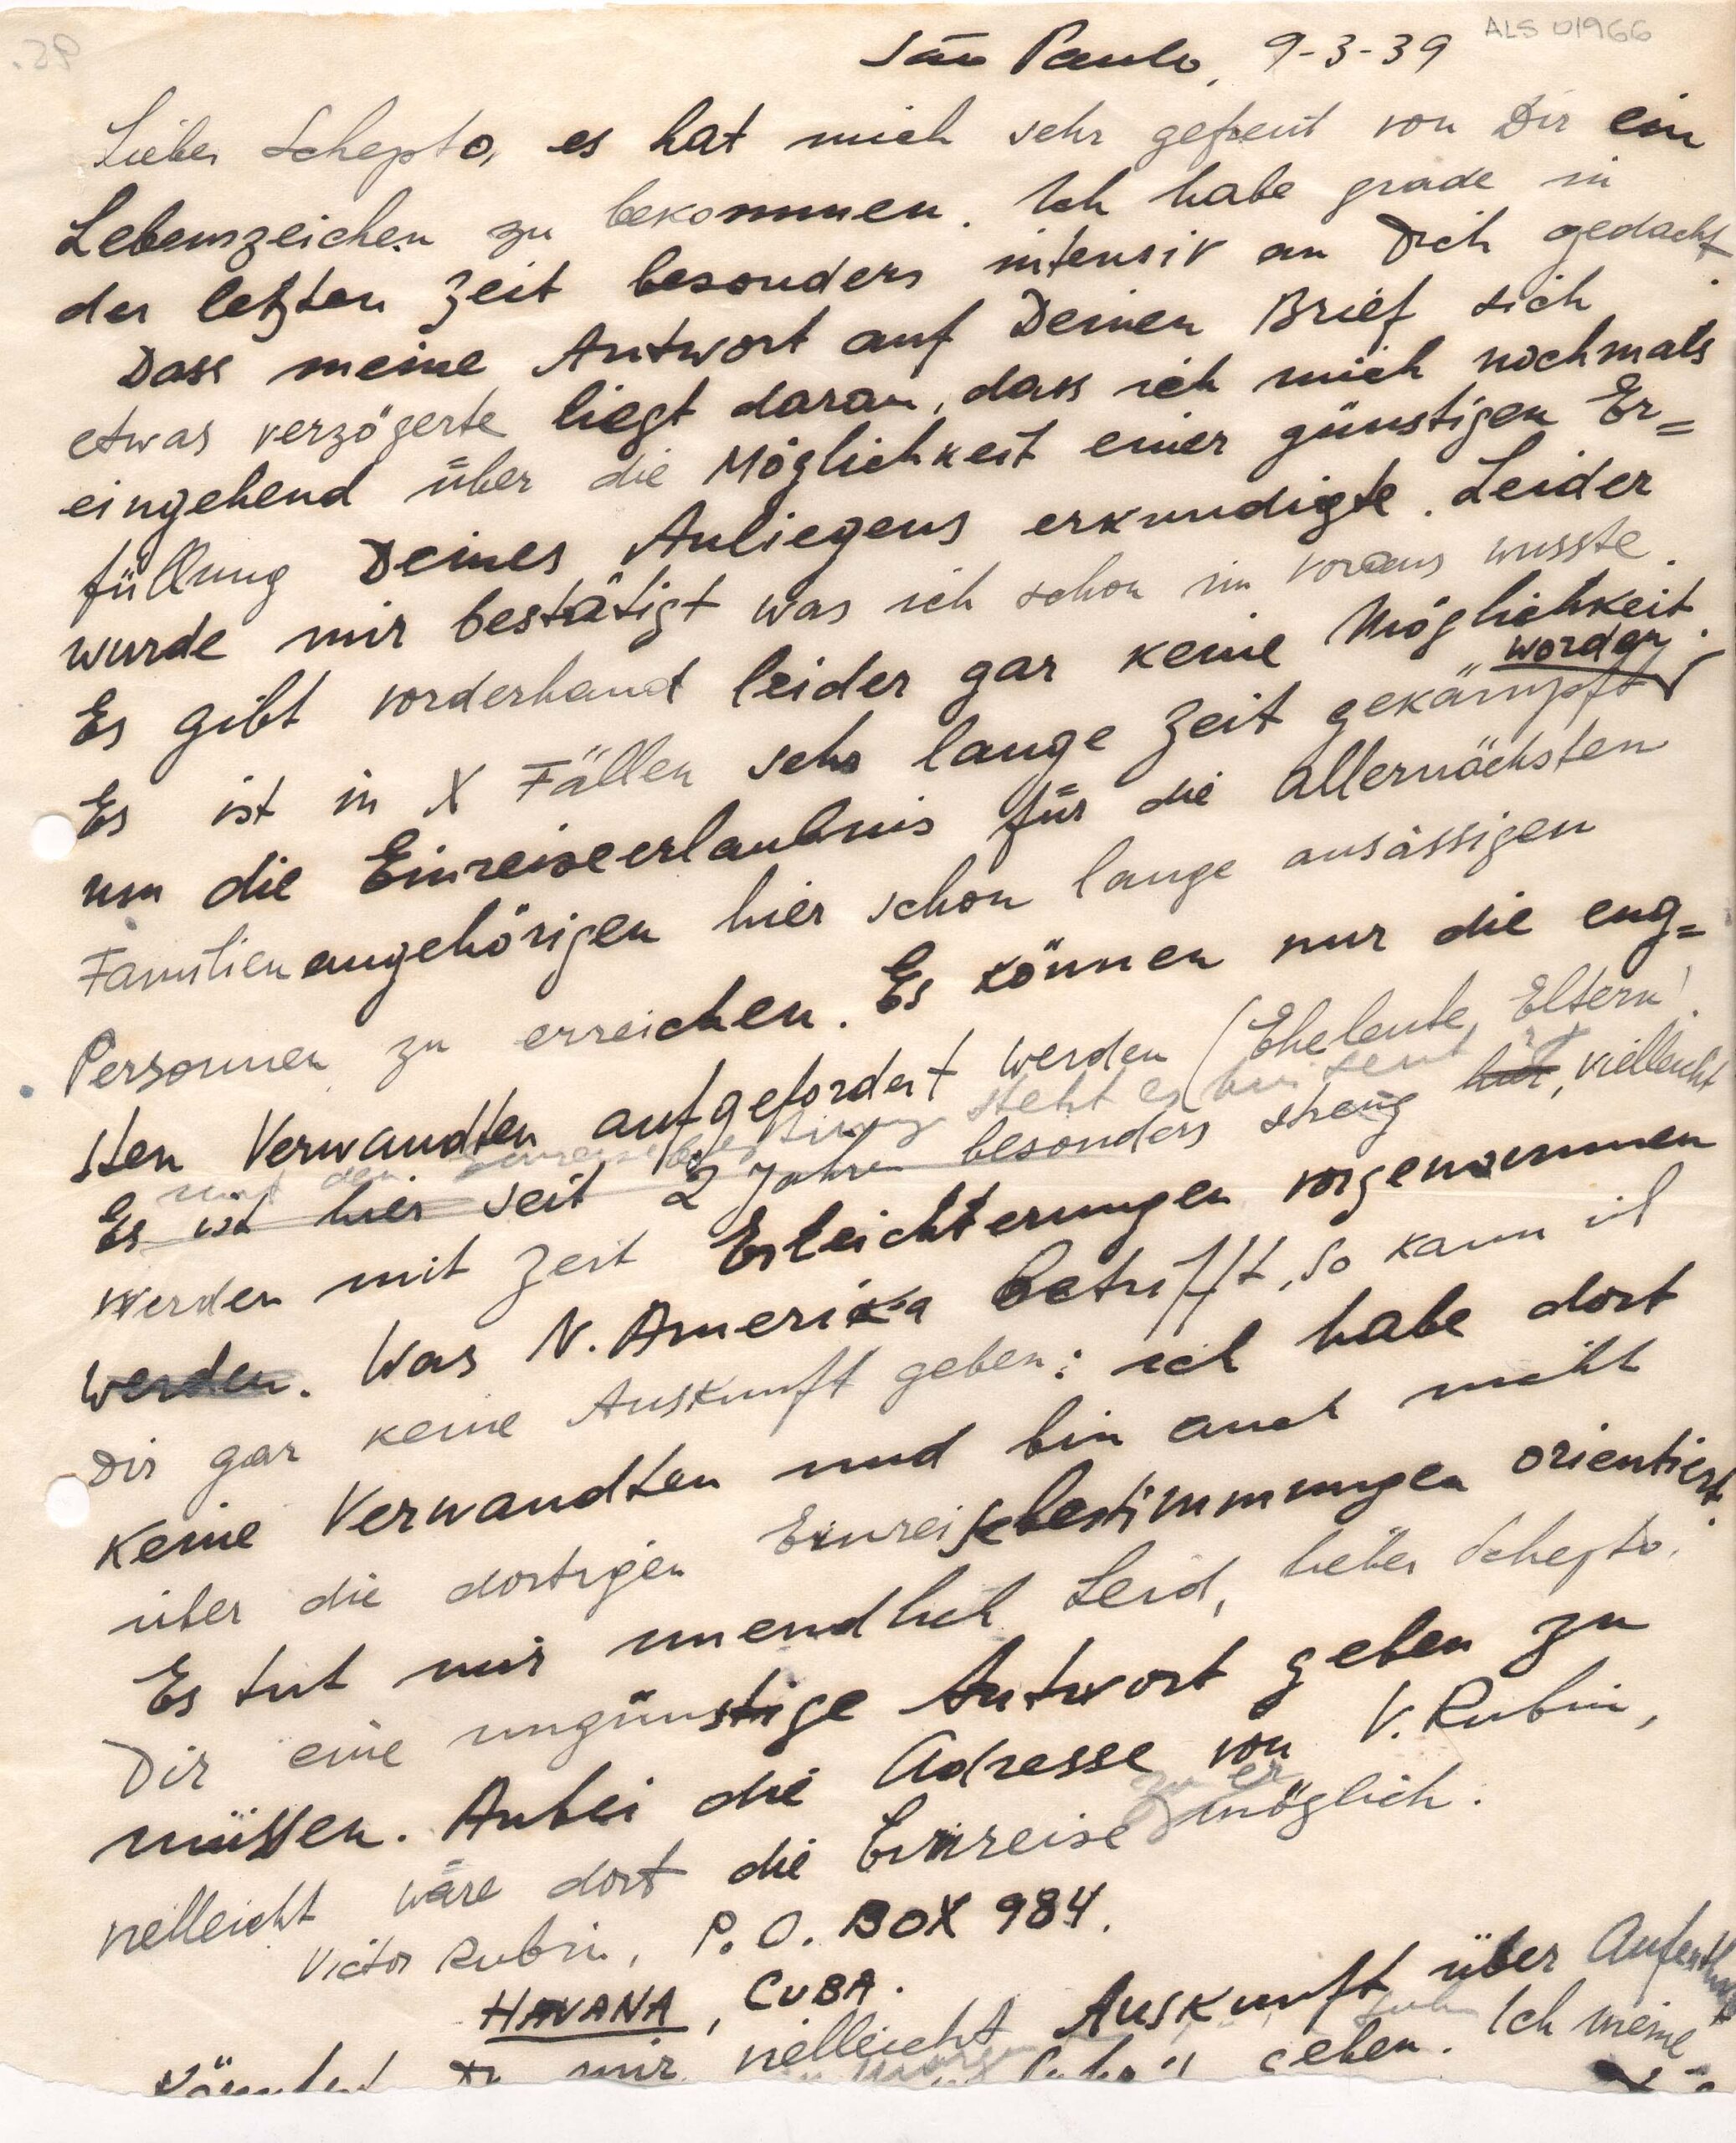 ALS 01966
São Paulo, 9-3-39
Lieber Schepto, es hat mich sehr gefreut von Dir ein
Lebenszeichen zu bekommen. Ich habe grade in
der letzten Zeit besonders intensiv an Dich gedacht.
Dass meine Antwort auf Deinen Brief sich
etwas verzögerte liegt daran, dass ich mich nochmals
eingehend über die Möglichkeit einer günstigen Er=
füllung Deines Anliegens erkundigte. Leider
wurde mir bestätigt was ich schon im voraus wusste.
Es gibt vorderhand leider gar keine Möglichkeit.
Es ist in X Fällen sehr lange Zeit gekämpft worden
um die Einreiseerlaubnis für die allernächsten
Familienangehörigen hier schon lange ansässigen
Personnen zu erreichen. Es können nur die eng=
sten Verwandten aufgefordert werden (Eheleute, Eltern).
mit den Einreisebestimmung steht es hier seit
Es ist hier seit 2 Jahren besonders streng hier, vielleicht
werden mit Zeit Erleichterungen vorgenommen
werden. Was N. Amerika betrifft, so kann ich
Dir gar keine Auskunft geben: ich habe dort
keine Verwandten und bin auch nicht
über die dortigen Einreisebestimmungen orientiert.
Es tut mir unendlich Leid, lieber Schepto,
Dir eine ungünstige Antwort geben zu
müssen. Anbei die Adresse von V. Rubin,
vielleicht wäre dort die Einreise zu er möglich.
Victor Rubin, P.O. BOX 984.
HAVANA, CUBA.
mir vielleicht Auskunft über
geben. Ich meine